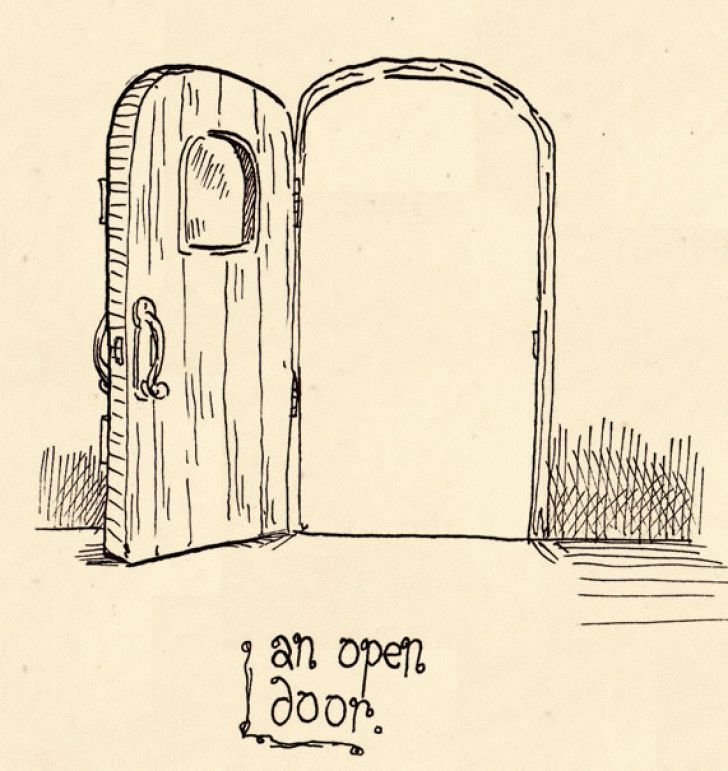 an open
door.